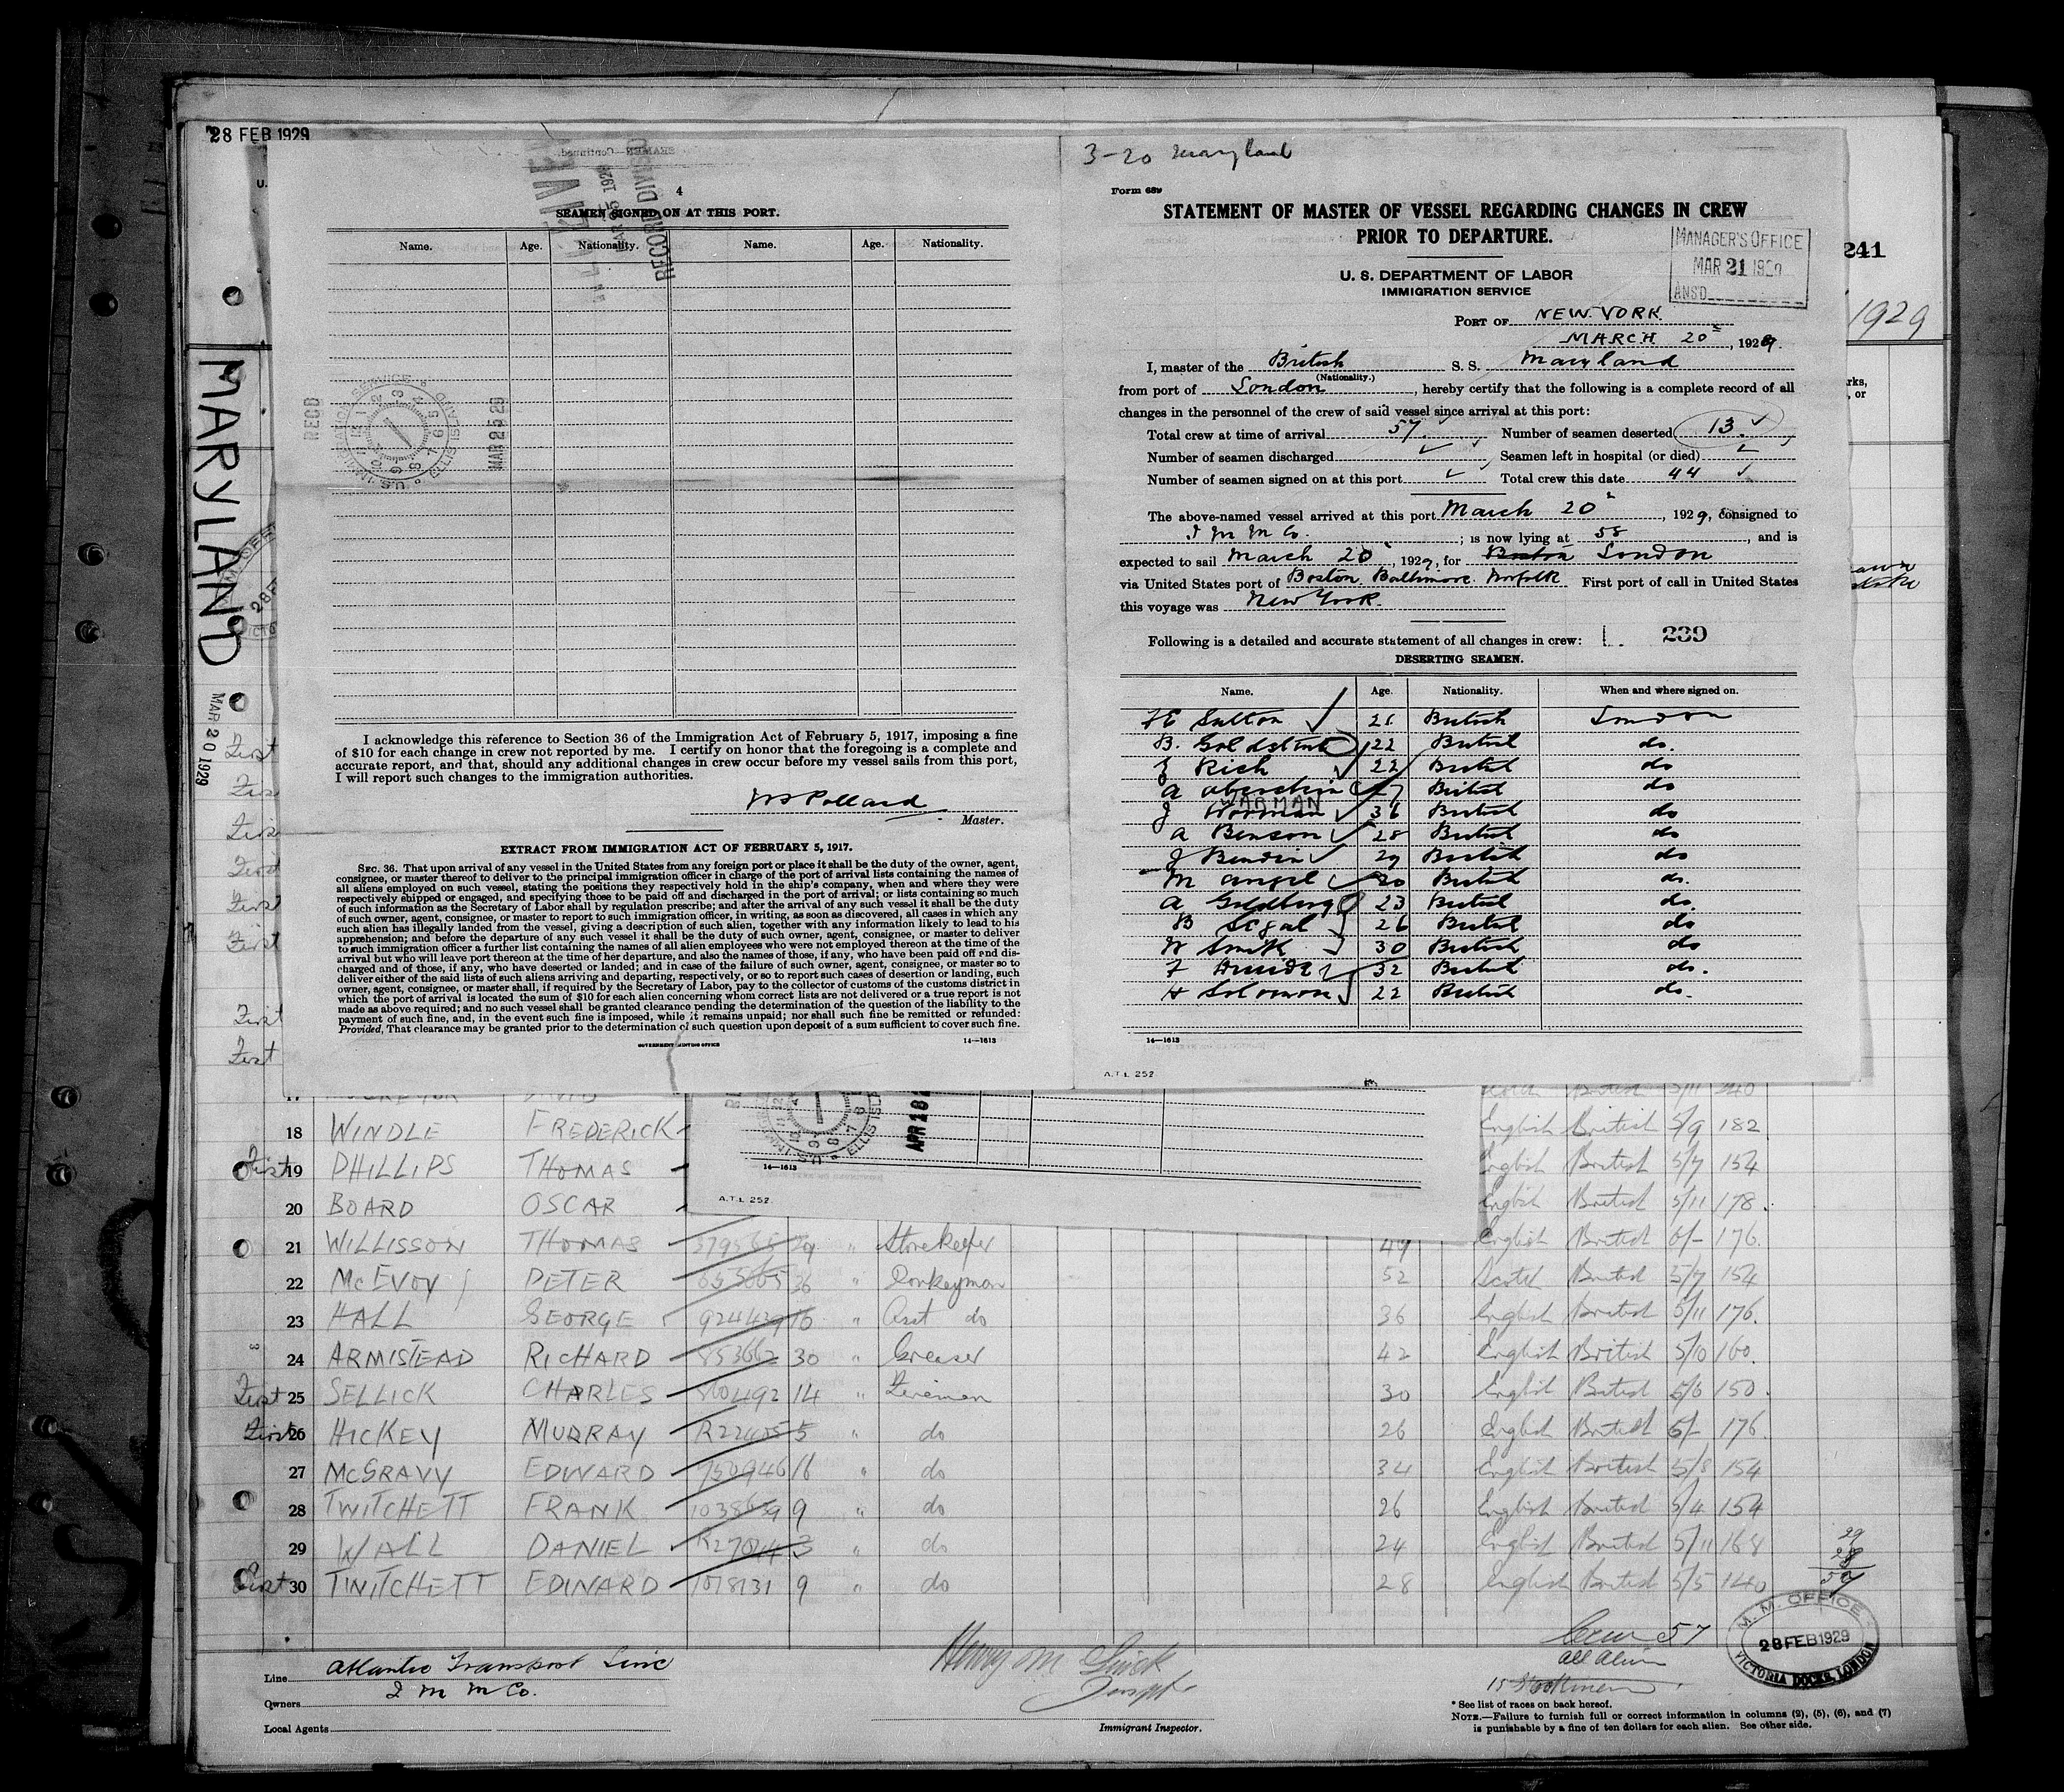 28 FEB 1929
MARYLAND
MAR 20 1929
4
SEAMEN SIGNED ON AT THIS PORT.
Name. Age. Nationality. Name. Age. Nationality.
RECORD DIVISION
RECD
MAR 25 29
I acknowledge this reference to Section 36 of the Immigration Act of February 5, 1917, imposing a fine
of $10 for each change in crew not reported by me. I certify on honor that the foregoing is a complete and
accurate report, and that, should any additional changes in crew occur before my vessel sails from this port,
I will report such changes to the immigration authorities.
Pollard
Master.
EXTRACT FROM IMMIGRATION ACT OF FEBRUARY 5, 1917.
SEC. 36. That upon arrival of any vessel in the United States from any foreign port or place it shall be the duty of the owner, agent,
consignee, or master thereof to deliver to the principal immigration officer in charge of the port of arrival lists containing the names of
all aliens employed on such vessel, stating the positions they respectively hold in the ship's company, when and where they were
respectively shipped or engaged, and specifying those to be paid off and discharged in the port of arrival; or lists containing so much
of such information as the Secretary of Labor shall by regulation prescribe; and after the arrival of any such vessel it shall be the duty
of such owner, agent, consignee, or master to report to such immigration officer, in writing, as soon as discovered, all cases in which any
such alien has illegally landed from the vessel, giving a description of such alien, together with any information likely to lead to his
apprehension; and before the departure of any such vessel it shall be the duty of such owner, agent, consignee, or master to deliver
to such immigration officer a further list containing the names of all alien employees who were not employed thereon at the time of the
arrival but who will leave port thereon at the time of her departure, and also the names of those, if any, who have been paid off and dis-
charged and of those, if any, who have deserted or landed; and in case of the failure of such owner, agent, consignee, or master so to
deliver either of the said lists of such aliens arriving and departing, respectively, or so to report such cases of desertion or landing, such
owner, agent, consignee, or master shall, if required by the Secretary of Labor, pay to the collector of customs of the customs district in
which the port of arrival is located the sum of $10 for each alien concerning whom correct lists are not delivered or a true report is not
made as above required; and no such vessel shall be granted clearance pending the determination of the question of the liability to the
payment of such fine, and, in the event such fine is imposed, while it remains unpaid; nor shall such fine be remitted or refunded:
Provided, That clearance may be granted prior to the determination of such question upon deposit of a sum sufficient to cover such fine.
GOVERNMENT PRINTING OFFICE 14—1613
3-20 Maryland
Form 689
STATEMENT OF MASTER OF VESSEL REGARDING CHANGES IN CREW
PRIOR TO DEPARTURE.
MANAGER'S OFFICE
MAR 21 1929
ANS'D
U. S. DEPARTMENT OF LABOR
IMMIGRATION SERVICE
PORT OF NEW YORK.
MARCH 20, 1929.
I, master of the British S. S. Maryland
(Nationality.)
from port of London, hereby certify that the following is a complete record of all
changes in the personnel of the crew of said vessel since arrival at this port:
Total crew at time of arrival 57. Number of seamen deserted 13.
Number of seamen discharged Seamen left in hospital (or died)
Number of seamen signed on at this port Total crew this date 44
The above-named vessel arrived at this port March 20, 1929, consigned to
I M M Co. ; is now lying at 58, and is
expected to sail March 20, 1929, for Boston London
via United States port of Boston. Baltimore. Norfolk First port of call in United States
this voyage was New York.
Following is a detailed and accurate statement of all changes in crew: 239
DESERTING SEAMEN.
Name. Age. Nationality. When and where signed on.
Sutton 21 British London
B. 22 British do.
J Rich 22 British do
A British do
WARMAN
J 36 British do
A Benson 28 British do
J 29 British do
M Angel 20 British do.
A Goldberg 23 British do
B Segal 26 British do
W Smith 30 British do
F 32 British do.
H Solomon 22 British do.
14—1613
A.T.L 252
241
1929
APR 18
14—1613
A.T.L 252
18 WINDLE FREDERICK English British 5/9 182
First 19 PHILLIPS THOMAS English British 5/7 154
20 BOARD OSCAR English British 5/11 178.
21 WILLISSON THOMAS 29 " Storekeeper 49 English British 6/- 176.
22 McEVOY PETER 36 " Donkeyman 52 Scotch British 5/7 154
23 HALL GEORGE 924439 16 " Asst do 36 English British 5/11 176.
24 ARMISTEAD RICHARD 853662 30 " Greaser 42 English British 5/10 160.
First 25 SELLICK CHARLES 14 " Fireman 30 English British 5/6 150.
First 26 HICKEY MURRAY 5 " do 26 English British 6/- 176.
27 McGRAVY EDWARD 750946 16 " do 34 English British 5/8 154
28 TWITCHETT FRANK 9 " do 26 English British 5/4 154
29 WALL DANIEL 3 " do 24 English British 5/11 168
First 30 TWITCHETT EDWARD 1078131 9 " do 28 English British 5/5 140
29
28
57
Crew 57
All Alien
15
M. M. OFFICE
28 FEB 1929
VICTORIA DOCKS, LONDON
Line Atlantic Transport Line
Owners I M M Co.
Local Agents
Immigrant Inspector.
* See list of races on back hereof.
NOTE.—Failure to furnish full or correct information in columns (2), (5), (6), and (7)
is punishable by a fine of ten dollars for each alien. See other side.